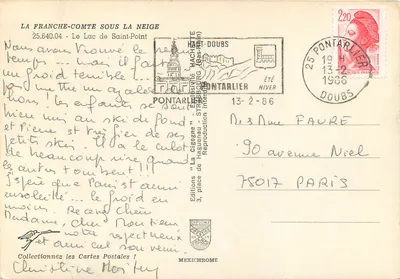 LA FRANCHE-COMTE SOUS LA NEIGE
25.640.04 - Le Lac de Saint-Point
Nous avons trouvé le beau
temps... mais il fait
un froid terrible...
les enfants se
mieu mi au ski de fond
et Pierre est très fier de ses
petits skis. Il a le culot
de beaucoup rire quand
les autres tombent !!!
J'espère que Paris est aussi
ensoleillé... le froid en
moins. Recevez Chère
Madame, cher Monsieur
notre respectueux
et amical souvenir.
Christine
Collectionnez les Cartes Postales !
HAUT-DOUBS
PONTARLIER
PONTARLIER
ÉTÉ
HIVER
25 PONTARLIER
19 H
13-2
1986
DOUBS
13-2-86
2,20
Editions "La Cigogne" - Exclusivité HACHETTE
3, place de Haguenau - STRASBOURG (Bas-Rhin)
Reproduction interdite
MEXICHROME
M. et Mme FAURE
90 avenue Niel
75017 PARIS